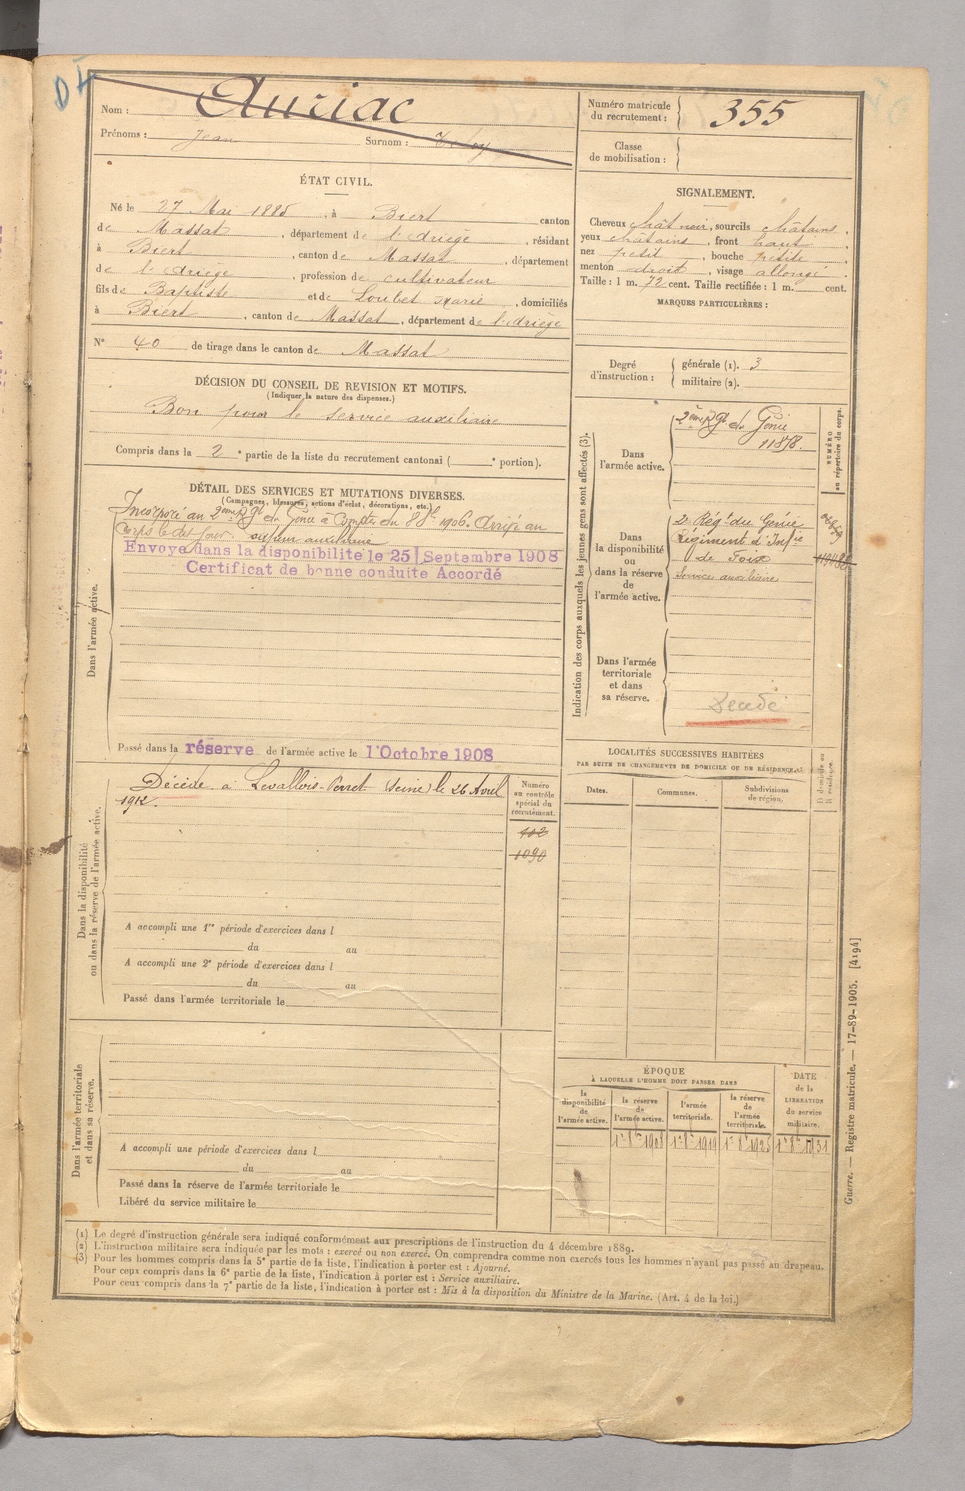 Nom : Auriac
Prénoms : Jean Surnom :
Numéro matricule
du recrutement : 355
Classe
de mobilisation :
ÉTAT CIVIL.
Né le 27 Mai 1885, à Biert canton
de Massat, département de l'Ariège, résidant
à Biert, canton de Massat, département
de l'Ariège, profession de cultivateur
fils de Baptiste et de Loubet Marie, domiciliés
à Biert, canton de Massat, département de l'Ariège
N° 40 de tirage dans le canton de Massat
SIGNALEMENT.
Cheveux chât noir, sourcils châtains,
yeux châtains, front haut,
nez petit, bouche petite,
menton droit, visage allongé.
Taille : 1 m. 72 cent. Taille rectifiée : 1 m. cent.
MARQUES PARTICULIÈRES :
Degré
d'instruction :
générale (1). 3
militaire (2).
DÉCISION DU CONSEIL DE REVISION ET MOTIFS.
(Indiquer la nature des dispenses.)
Bon pour le service auxiliaire
Compris dans la 2e partie de la liste du recrutement cantonal (e portion).
DÉTAIL DES SERVICES ET MUTATIONS DIVERSES.
(Campagnes, blessures, actions d'éclat, décorations, etc.)
Dans l'armée active.
Incorporé au 2ème Rgt du Génie à Compter du 8 8bre 1906. Arrivé au
Corps le dit jour. sapeur auxiliaire
Envoyé dans la disponibilité le 25 Septembre 1908
Certificat de bonne conduite Accordé
Passé dans la réserve de l'armée active le 1 Octobre 1908
Indication des corps auxquels les jeunes gens sont affectés (3).
NUMÉRO
au répertoire du corps.
Dans
l'armée active.
2ème Rgt du Génie
11878.
Dans
la disponibilité
ou
dans la réserve
de
l'armée active.
2e Régt du Génie
Régiment d'Infie
de Foix
Service auxiliaire
Dans l'armée
territoriale
et dans
sa réserve.
Dans la disponibilité
ou dans la réserve de l'armée active.
Décédé à Levallois-Perret (Seine) le 26 Avril
1912.
Numéro
au contrôle
spécial du
recrutement.
1090
A accompli une 1re période d'exercices dans l
du au
A accompli une 2e période d'exercices dans l
du au
Passé dans l'armée territoriale le
LOCALITÉS SUCCESSIVES HABITÉES
PAR SUITE DE CHANGEMENTS DE DOMICILE OU DE RÉSIDENCE.
Dates.
Communes.
Subdivisions
de région.
D domicile ou
R résidence.
Dans l'armée territoriale
et dans sa réserve.
A accompli une période d'exercices dans l
du au
Passé dans la réserve de l'armée territoriale le
Libéré du service militaire le
ÉPOQUE
À LAQUELLE L'HOMME DOIT PASSER DANS
la
disponibilité
de
l'armée active.
la réserve
de
l'armée active.
l'armée
territoriale.
la réserve
de
l'armée
territoriale.
DATE
de la
LIBÉRATION
du service
militaire.
1er 8bre 1908 1er 8bre 1919 1er 8bre 1925 1er 8bre 1931
Guerre. — Registre matricule. — 17-89-1905. [4194]
(1) Le degré d'instruction générale sera indiqué conformément aux prescriptions de l'instruction du 4 décembre 1889.
(2) L'instruction militaire sera indiquée par les mots : exercé ou non exercé. On comprendra comme non exercés tous les hommes n'ayant pas passé au drapeau.
(3) Pour les hommes compris dans la 5e partie de la liste, l'indication à porter est : Ajourné.
Pour ceux compris dans la 6e partie de la liste, l'indication à porter est : Service auxiliaire.
Pour ceux compris dans la 7e partie de la liste, l'indication à porter est : Mis à la disposition du Ministre de la Marine. (Art. 4 de la loi.)